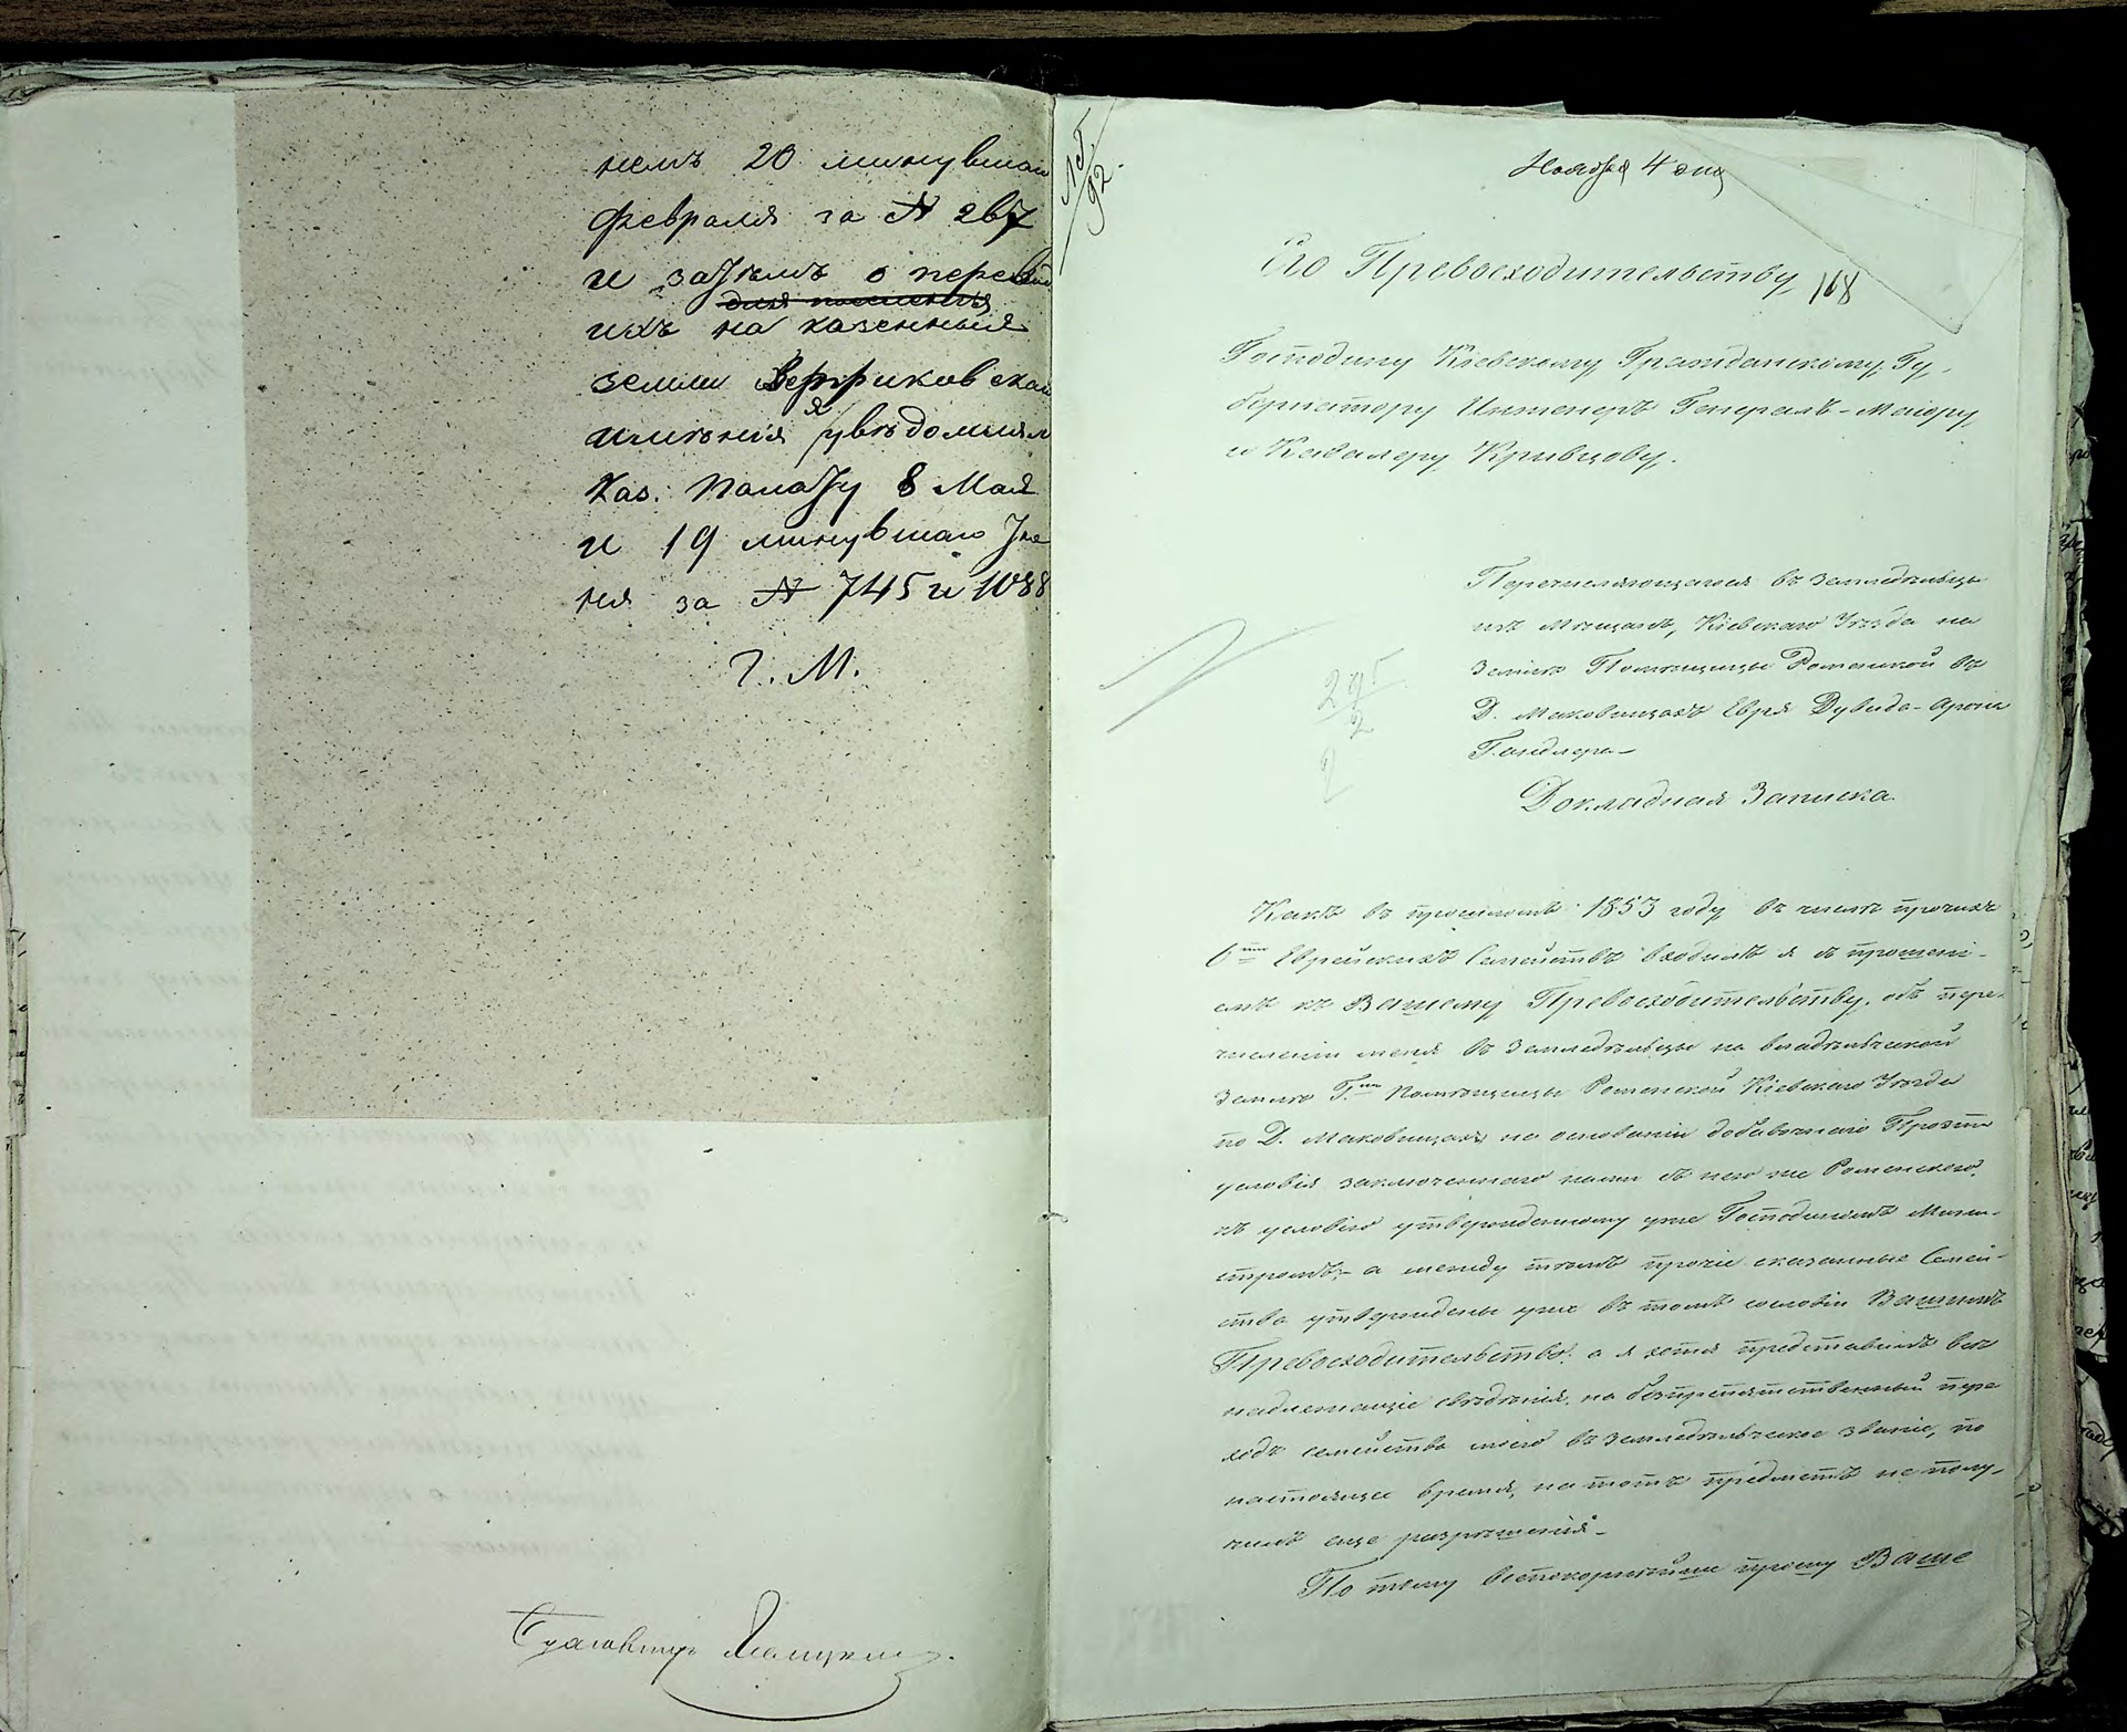 немъ 20 минувшаго
февраля за № 267
и затѣмъ о перевод
для поселенія
ихъ на казенныя
земли Вертриковскаго
имѣнія я увѣдомлял
Каз. Палату 8 Мая
и 19 минувшаго Ію
ня за № 745 и 1088
Г. М.
Ноября 4 дня
Его Превосходительству
168
Господину Кіевскому Гражданскому Гу-
бернатору Инженеръ Генералъ-Маіору
и Кавалеру Кривцову.
Перечисляющагося въ земледѣльцы
изъ мѣщанъ, Кіевскаго Уѣзда на
землѣ Помѣщицы Роменской въ
Д. Маковищахъ Еврея Дувида-Арона
Гандлера
Докладная Записка.
295
2
2
Какъ въ прошломъ 1853 году въ числѣ прочихъ
6ти Еврейскихъ Семействъ входилъ я съ прошені-
емъ къ Вашему Превосходительству, объ пере-
численіи меня въ земледѣльцы на владѣльческой
землѣ Гжи Помѣщицы Роменской Кіевскаго Уѣзда
по Д. Маковищахъ на основаніи добавочнаго
условія заключеннаго нами съ нею же Роменскою,
къ условію утвержденному уже Господиномъ Мини-
стромъ,- а между тѣмъ прочіе сказанные Семей-
ства утверждены уже въ томъ сословіи Вашимъ
Превосходительство. а я хотя представилъ всѣ
надлежащіе свѣдѣнія, на безпрепятственный пере
ходъ семейства моего въ земледѣльческое званіе, но
настоящее время, на тотъ предметъ не полу-
чилъ еще разрѣшенія-
По тому всепокорнѣйше прошу Ваше